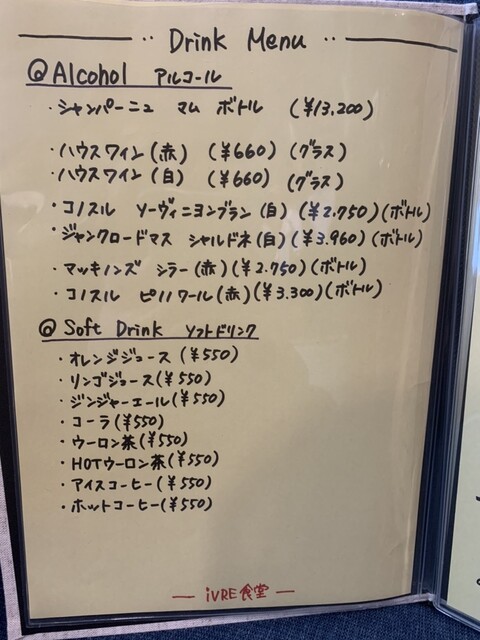 Drink Menu
@Alcohol アルコール
・シャンパーニュ マム ボトル (¥13,200)
・ハウスワイン(赤) (¥660) (グラス)
・ハウスワイン(白) (¥660) (グラス)
・コノスル ソーヴィニヨンブラン(白) (¥2.750)(ボトル)
・ジャンクロードマス シャルドネ(白)(¥3.960)(ボトル)
・マッキノンズ シラー(赤)(¥2.750)(ボトル)
・コノスル ピノノワール(赤)(¥3.300)(ボトル)
@Soft Drink ソフトドリンク
・オレンジジュース (¥550)
・リンゴジュース(¥550)
・ジンジャーエール(¥550)
・コーラ(¥550)
・ウーロン茶(¥550)
・HOTウーロン茶(¥550)
・アイスコーヒー(¥550)
・ホットコーヒー(¥550)
― iVRE食堂 ―